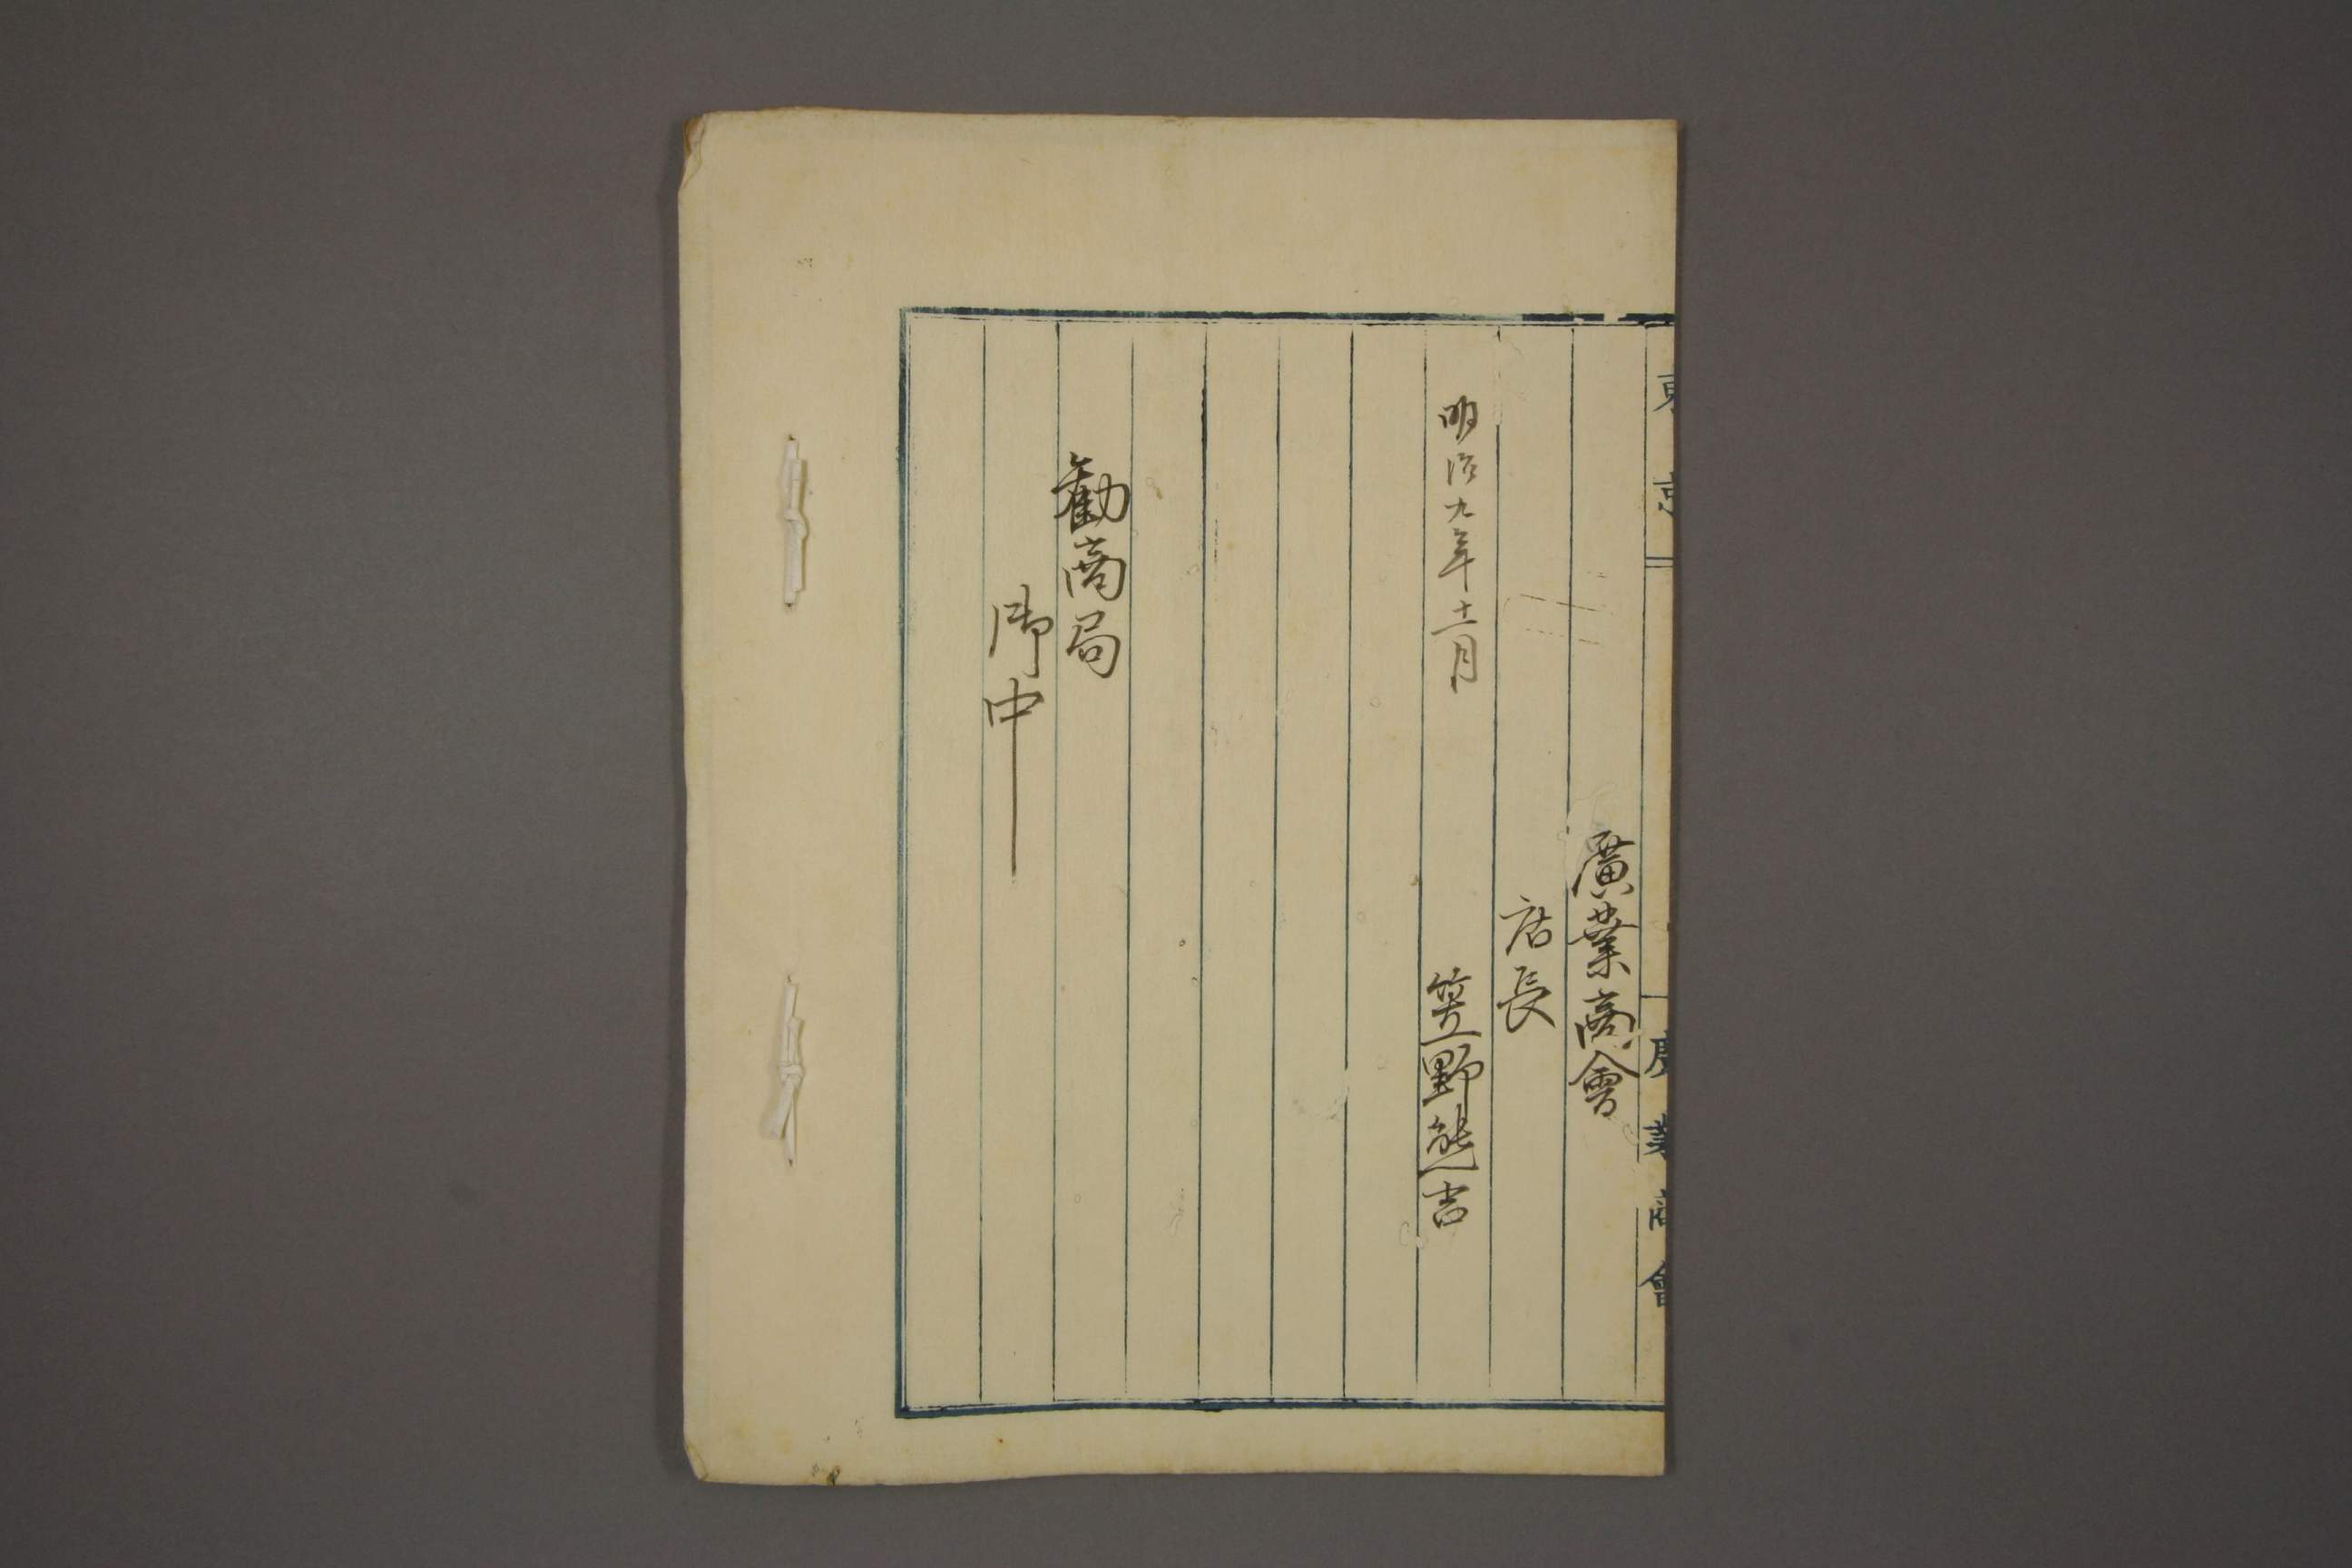 東京
廣業商會
廣業商會
店長
明治九年十一月
笠野熊吉
勸商局
御中